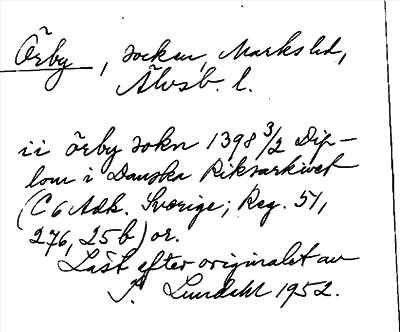 Örby, socken, Marks hd,
Älvsb. l.
i i örby sokn 1398 3/2 Dip-
lom i Danska Riksarkivet
(C 6 Adh. Sverige; Reg. 51,
276, 25 b) or.
Läst efter originalet av
I. Lundahl 1952.